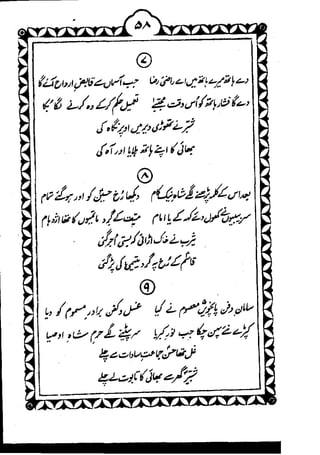 ۵۸
۷
دے ہاتھ میرے ہاتھ میں اے راضی رضا جب آسماں سے قابض ارواح آئے گا
دے گا فشار ہاتھ کو اُس وقت مجتبےٰ تعمیل حکم کر کے وہ کرنے لگا بکا
شبرؑ نے تھوڑی دیر میں اوپر نگاہ کی
بھائی کا اپنے ہاتھ ہلایا اور آہ کی
۸
بعد اس کے کلمہ پڑھنے لگے شاہ نیک نام دیکھا رخ حسینؑ کو اور ہو گئے تمام
سر بیبیوں نے کھول دئے کہہ کے یا امام میت کے گرد ماتمیوں کا تھا اژدہام
یثرب نے خاک اڑائی کہ بستی اجڑ گئی
قاسمؑ کے رخ پہ گرد یتیمی کی پڑ گئی
۹
سامان دفن پانچویں معصوم نے کیا غسل و کفن برادر مسموم کو دیا
کپڑے نئے پہن چکا جب نور کبریا سر پیٹنے لگے حرم شاہ اوصیا
غل تھا حسنؑ جماعت سادات سے چلے
شبیرؑ گھر سے بھائی کا تابوت لے چلے